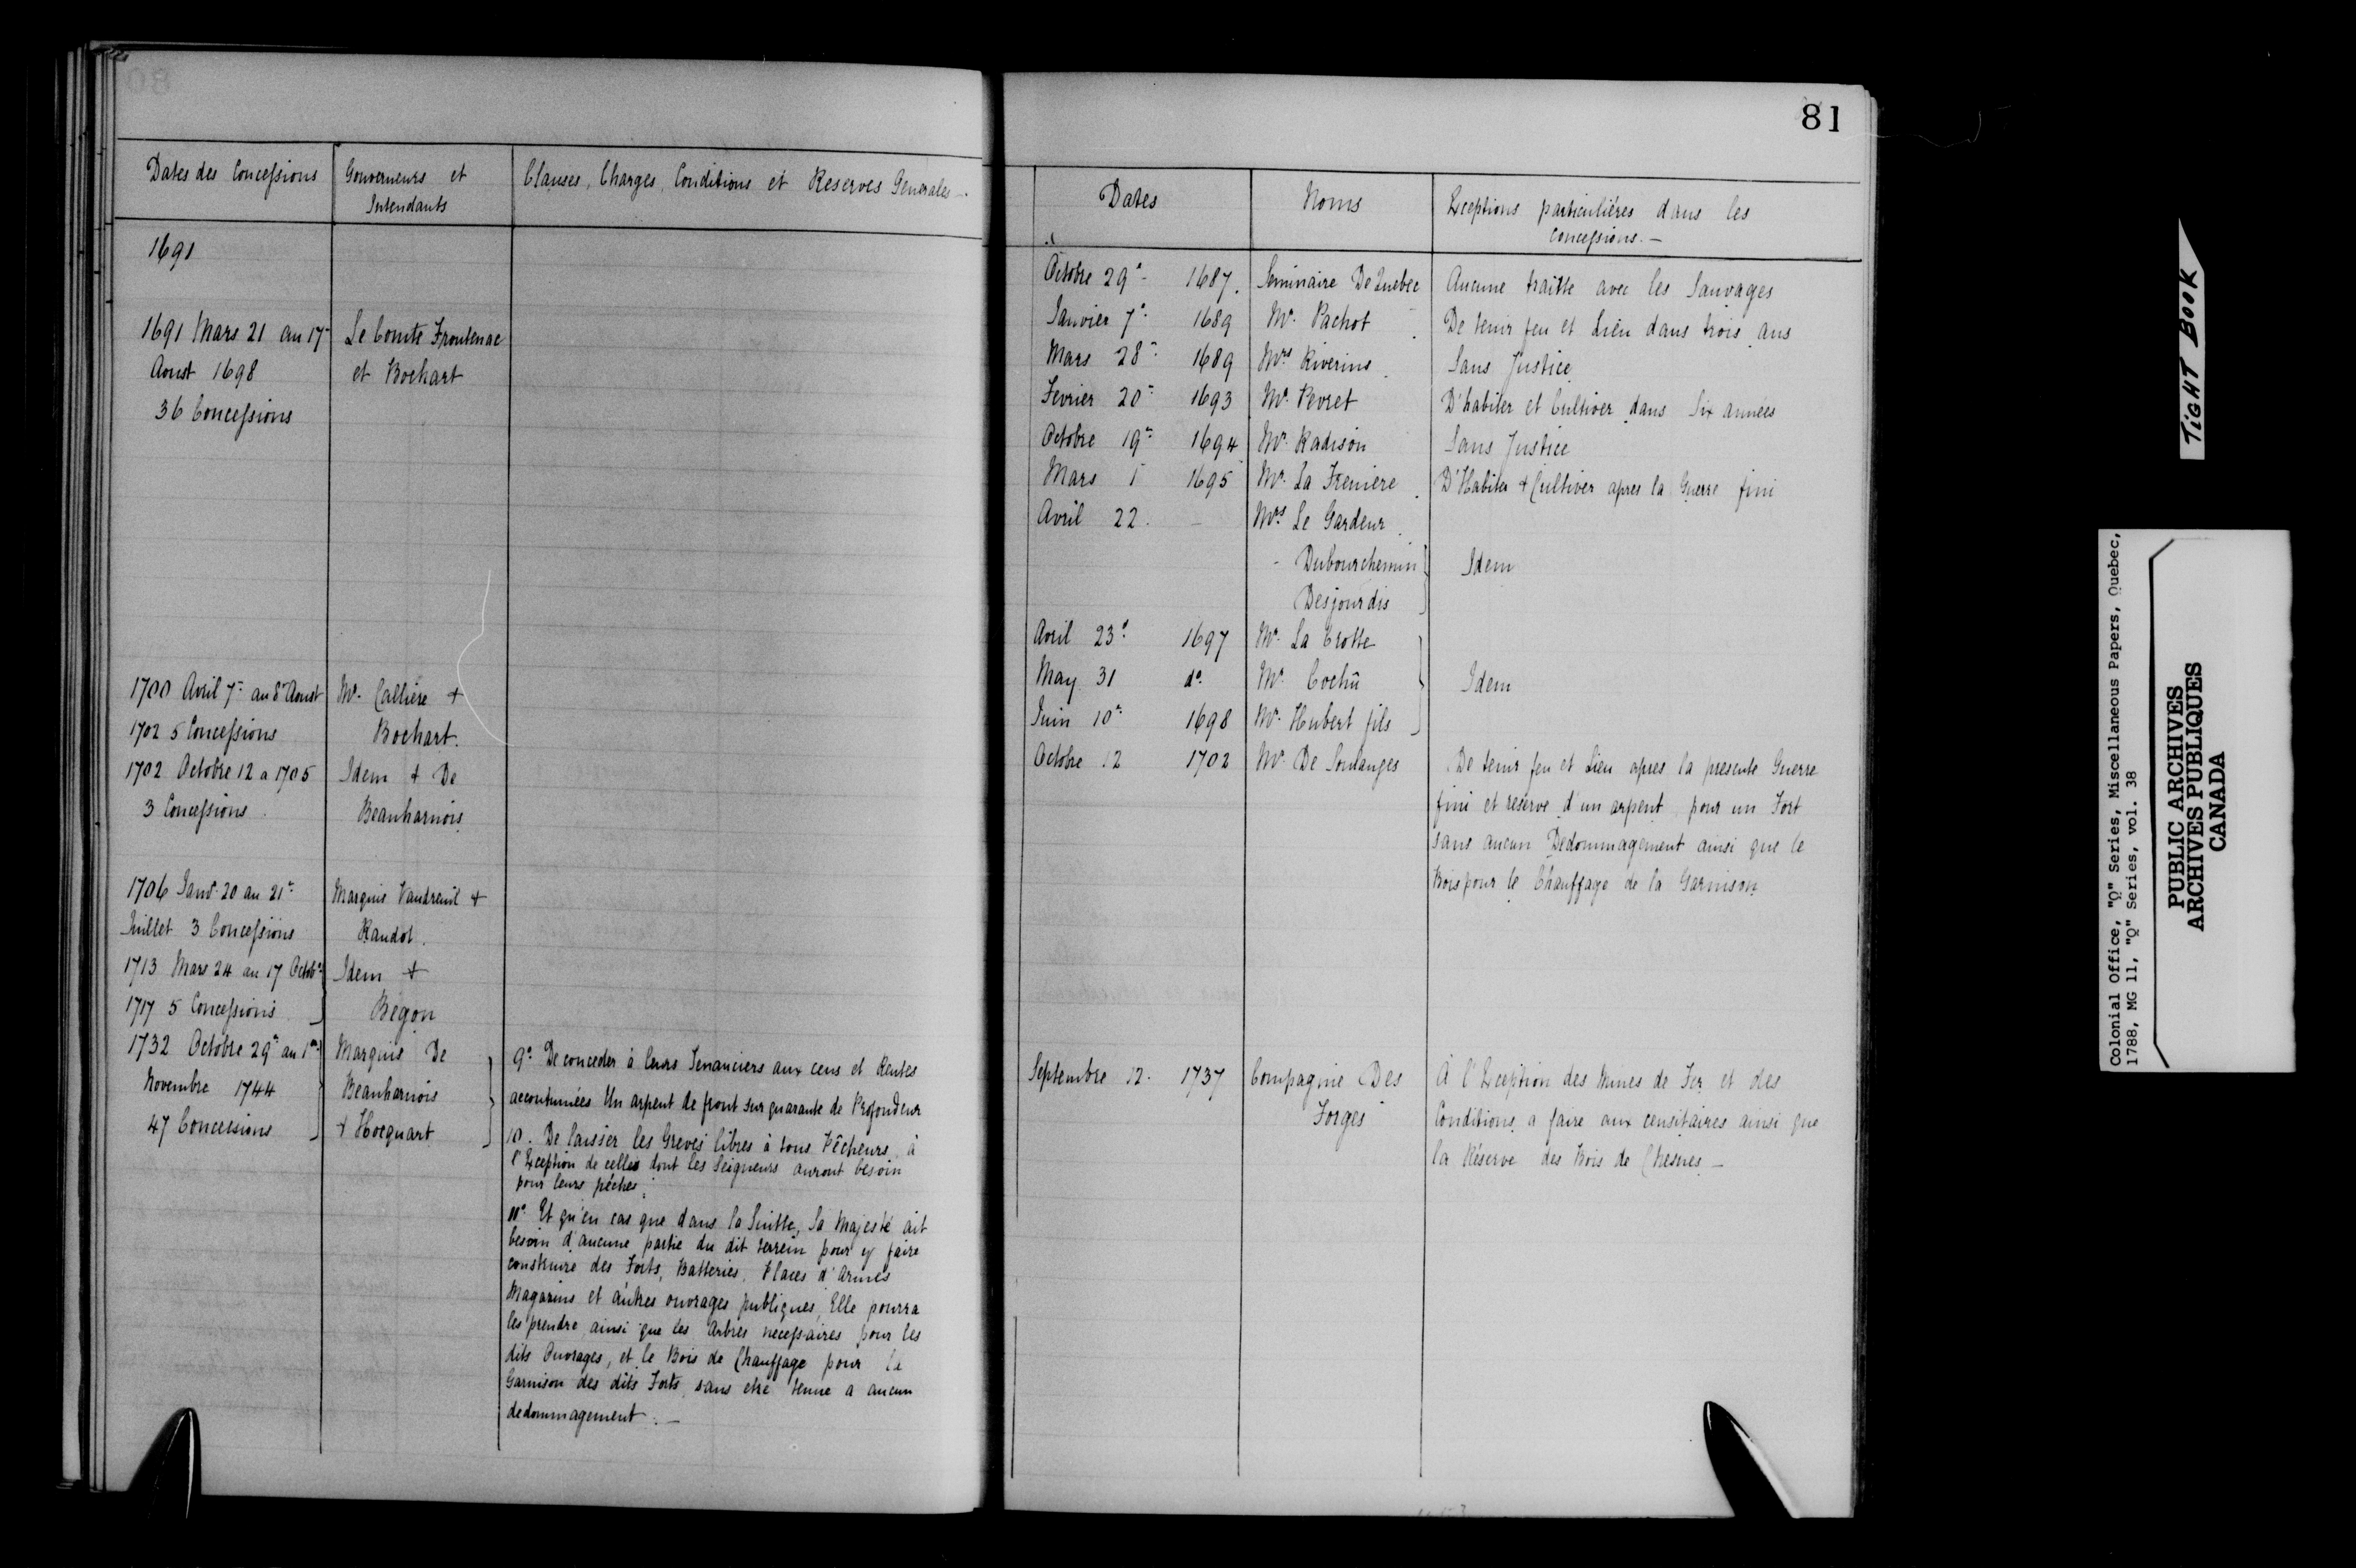 Dates des Concessions | Gouverneurs et Intendants | Clauses, Charges, Conditions et Reserves Generales.
1691
1691 Mars 21 au 17
Aoust 1698
36 Concessions
Le Comte Frontenac
et Bochart
1700 Avril 7e au 8e Aoust
1702 5 Concessions
Mr. Callière +
Bochart.
1702 Octobre 12 a 1705
3 Concessions
Idem + De
Beauharnois
1706 Janvr 20 au 21e
Juillet 3 Concessions
Marquis Vaudreuil +
Raudot.
1713 Mars 24 au 17 Octobre
1717 5 Concessions
Idem +
Begon
1732 Octobre 29e au 1er
Novembre 1744
47 Concessions
Marquis De
Beauharnois
+ Hocquart
9o. De conceder à leurs Tenanciers aux cens et Rentes
accoutumées Un arpent de front sur quarante de Profondeur
10. De laisser les Greves libres à tous Pêcheurs, à
l'Exception de celles dont les Seigneurs auront besoin
pour leurs pêches;
11o. Et qu'en cas que dans la Suitte, Sa Majesté ait
besoin d'aucune partie du dit terrein pour y faire
construire des Forts, Batteries, Places d'Armes
Magazins et autres ouvrages publiques, Elle pourra
les prendre ainsi que les Arbres necessaires pour les
dits Ouvrages, et le Bois de Chauffage pour la
Garnison des dits Forts, sans etre tenue a aucun
dedommagement. —
81
Dates | Noms | Exceptions particulières dans les
concessions. —
Octobre 29e - 1687. Seminaire De Quebec Aucune traitte avec les Sauvages
Janvier 7e 1689 Mr. Pachot De tenir feu et Lieu dans trois ans
Mars 28e 1689 Mrs Riverins Sans Justice
Fevrier 20e 1693 Mr. Pevret D'habiter et Cultiver dans Six années
Octobre 19e 1694 Mr. Radison Sans Justice
Mars 1 1695 Mr. La Freniere D'Habiter + Cultiver apres la Guerre fini
Avril 22. — Mrs Le Gardeur
- Dubourchemin Idem
Desjourdis
Avril 23e 1697 Mr. La Trotte
May 31 do. Mr. Cochû Idem
Juin 10e 1698 Mr. Hubert fils
Octobre 12 1702 Mr. De Soulanges De tenir feu et Lieu apres la presente Guerre
fini et reserve d'un arpent pour un Fort
sans aucun Dedommagement ainsi que le
Bois pour le Chauffage de la Garnison
Septembre 12. 1737 Compagnie Des À l'Exception des Mines de Fer et des
Forges Conditions a faire aux censitaires ainsi que
la Réserve des Bois de Chesnes —
TIGHT BOOK
Colonial Office, "Q" Series, Miscellaneous Papers, Quebec,
1788, MG 11, "Q" Series, vol. 38
PUBLIC ARCHIVES
ARCHIVES PUBLIQUES
CANADA